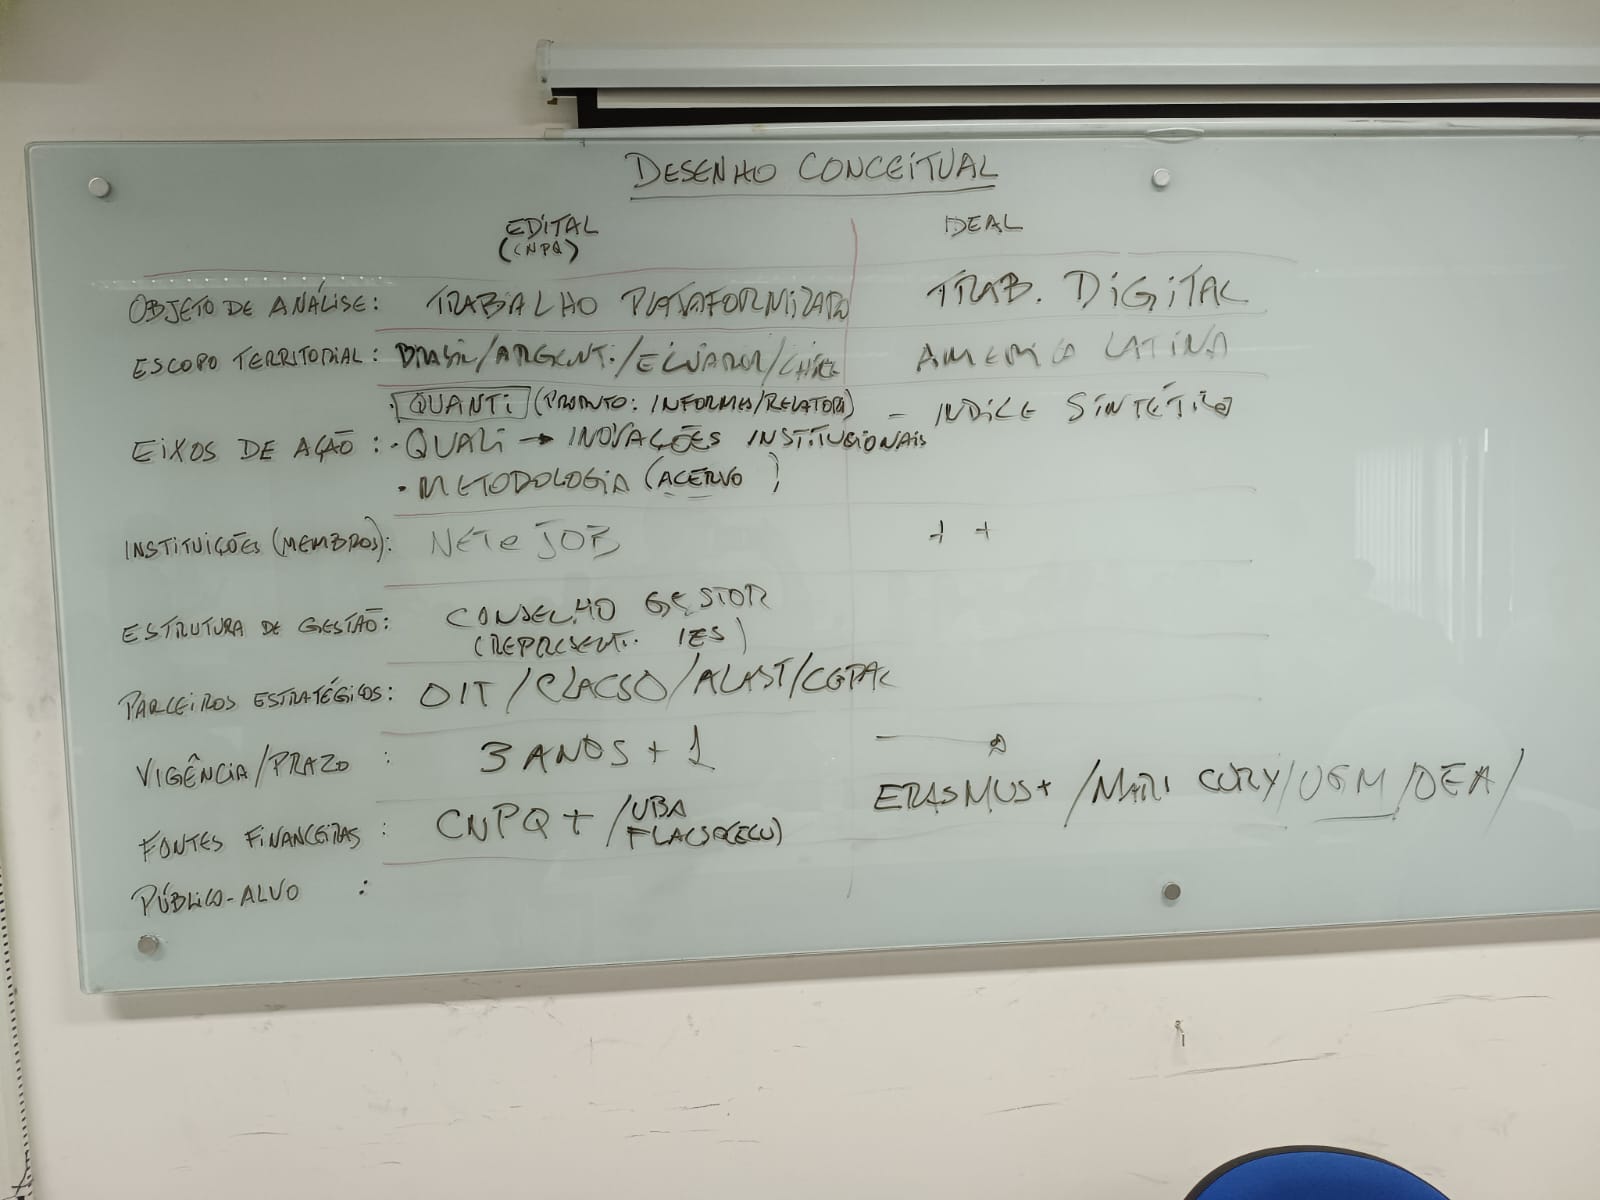 DESENHO CONCEITUAL
EDITAL IDEAL
(CNPQ)
OBJETO DE ANÁLISE: TRABALHO PLATAFORMIZADO TRAB. DIGITAL
ESCOPO TERRITORIAL: BRASIL/ARGENT./ECUADOR/CHILE AMERICA LATINA
. QUANTI (PRODUTO: INFORMES/RELATORI) - INDICE SINTÉTICO
EIXOS DE AÇÃO: . QUALI → INOVAÇÕES INSTITUCIONAIS
. METODOLOGIA (ACERVO )
INSTITUIÇÕES (MEMBROS): NETeJOB + +
ESTRUTURA DE GESTÃO: CONSELHO GESTOR
(REPRESENT. IES)
PARCEIROS ESTRATÉGICOS: OIT/CLACSO/ALAST/CEPAL
VIGÊNCIA/PRAZO : 3 ANOS + 1 →
FONTES FINANCEIRAS : CNPQ + /UBA ERASMUS+ /MARI CURY/UGM/OEA/
FLACSO(ECU)
PÚBLICO-ALVO :